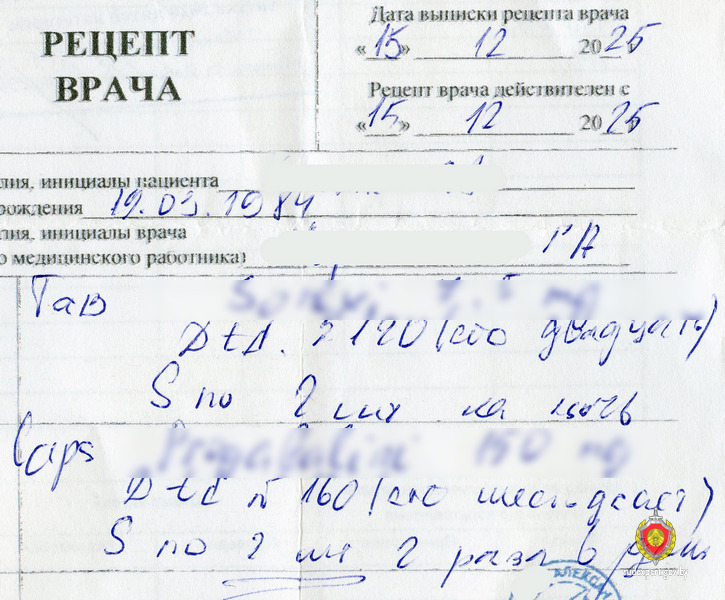 РЕЦЕПТ
ВРАЧА
Дата выписки рецепта врача
«15» 12 2025
Рецепт врача действителен с
«15» 12 2025
лия, инициалы пациента
рождения 19.03.1984
лия, инициалы врача
о медицинского работника)
Таб
D.t.d. № 120 (сто двадцать)
S по 2 шт на ночь
Caps 150 mg
D t d № 160 (сто шестьдесят)
S по 2 шт 2 раза в день
АЛЕКСАН